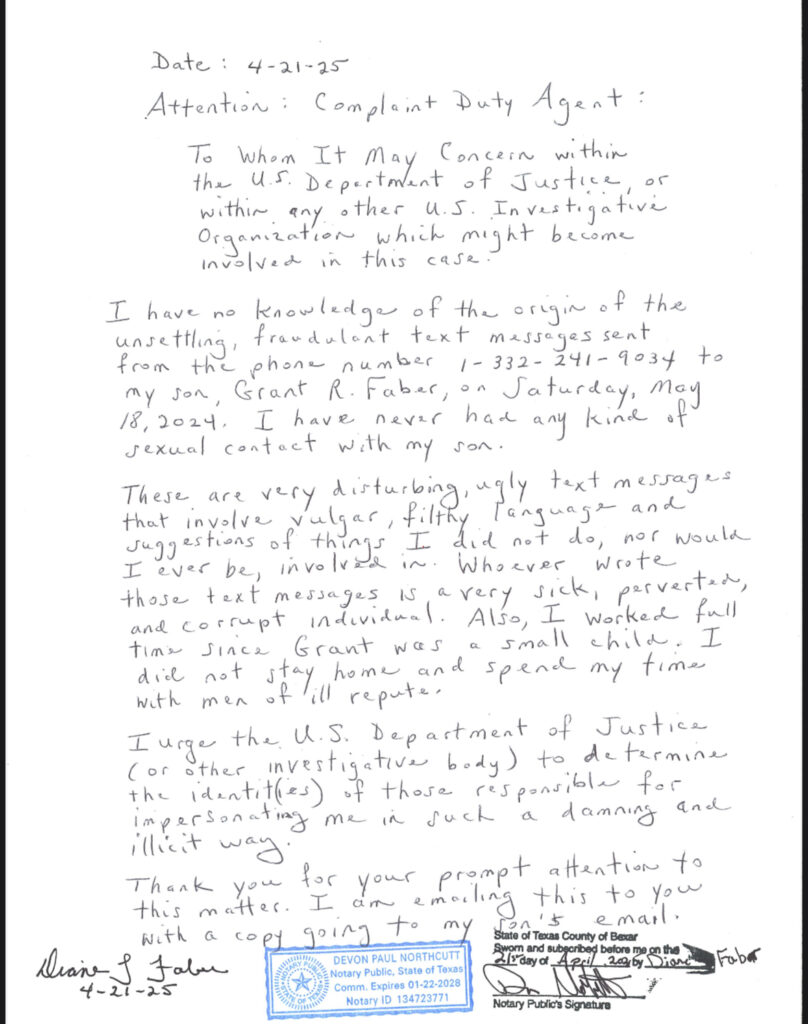 Date: 4-21-25
Attention: Complaint Duty Agent:
To Whom It May Concern within
the U.S. Department of Justice, or
within any other U.S. Investigative
Organization which might become
involved in this case.
I have no knowledge of the origin of the
unsettling, fraudulant text messages sent
from the phone number 1-332-241-9034 to
my son, Grant R. Faber, on Saturday, May
18, 2024. I have never had any kind of
sexual contact with my son.
These are very disturbing, ugly text messages
that involve vulgar, filthy language and
suggestions of things I did not do, nor would
I ever be, involved in. Whoever wrote
those text messages is a very sick, perverted,
and corrupt individual. Also, I worked full
time since Grant was a small child. I
did not stay home and spend my time
with men of ill repute.
I urge the U.S. Department of Justice
(or other investigative body) to determine
the identit(ies) of those responsible for
impersonating me in such a damning and
illicit way.
Thank you for your prompt attention to
this matter. I am emailing this to you
with a copy going to my son's email.
Diane L Faber
4-21-25
DEVON PAUL NORTHCUTT
Notary Public, State of Texas
Comm. Expires 01-22-2028
Notary ID 134723771
NOTARY PUBLIC
STATE OF TEXAS
State of Texas County of Bexar
Sworn and subscribed before me on the
21st day of April, by Diane Faber
Notary Public's Signature